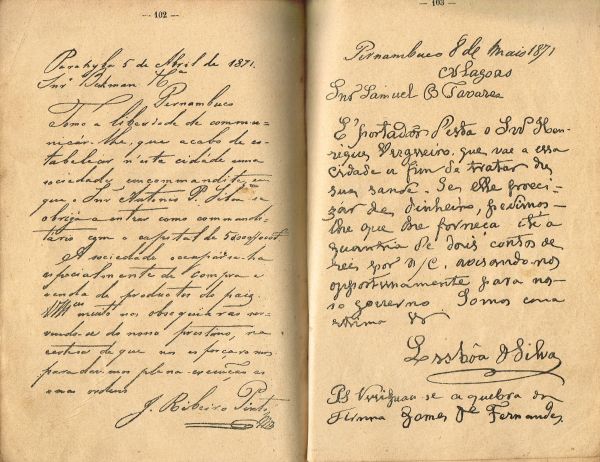 — 102 —
Parahyba 5 de Abril de 1871.
Snr Hckman Ca
Pernambuco
Tomo a liberdade de commu-
nicar-lhe, que acabo de es-
tabelecer n'esta cidade uma
sociedade encommandita em
que o Snr Antonio P. Silva se
obriga a entrar como comman-
ditario com o capital de
A sociedade occupar-se-ha
especialmente de compra e
venda de productos do paiz.
muito nos obsequiará ser-
vindo-se do nosso prestimo, na
certeza de que nos esforçaremos
para dar-mos plena execução as
suas ordens
J. Ribeiro Pinto
— 103 —
Pernambuco 8 de Maio 1871
Alagoas
Snr Samuel B Tavares
É portador desta o Snr Hen-
rique Vergueiro, que vae a essa
cidade a fim de tratar de
sua saude. Se elle preci-
zár de dinheiro, pedimos-
lhe que lhe forneça até a
quantia de dois contos de
reis por n/C. avisando-nos
opportunamente para nos-
so governo Somos com a
estima &
Lisbôa & Silva
PS Verificou-se a quebra da
Firma Gomes De Fernandes.